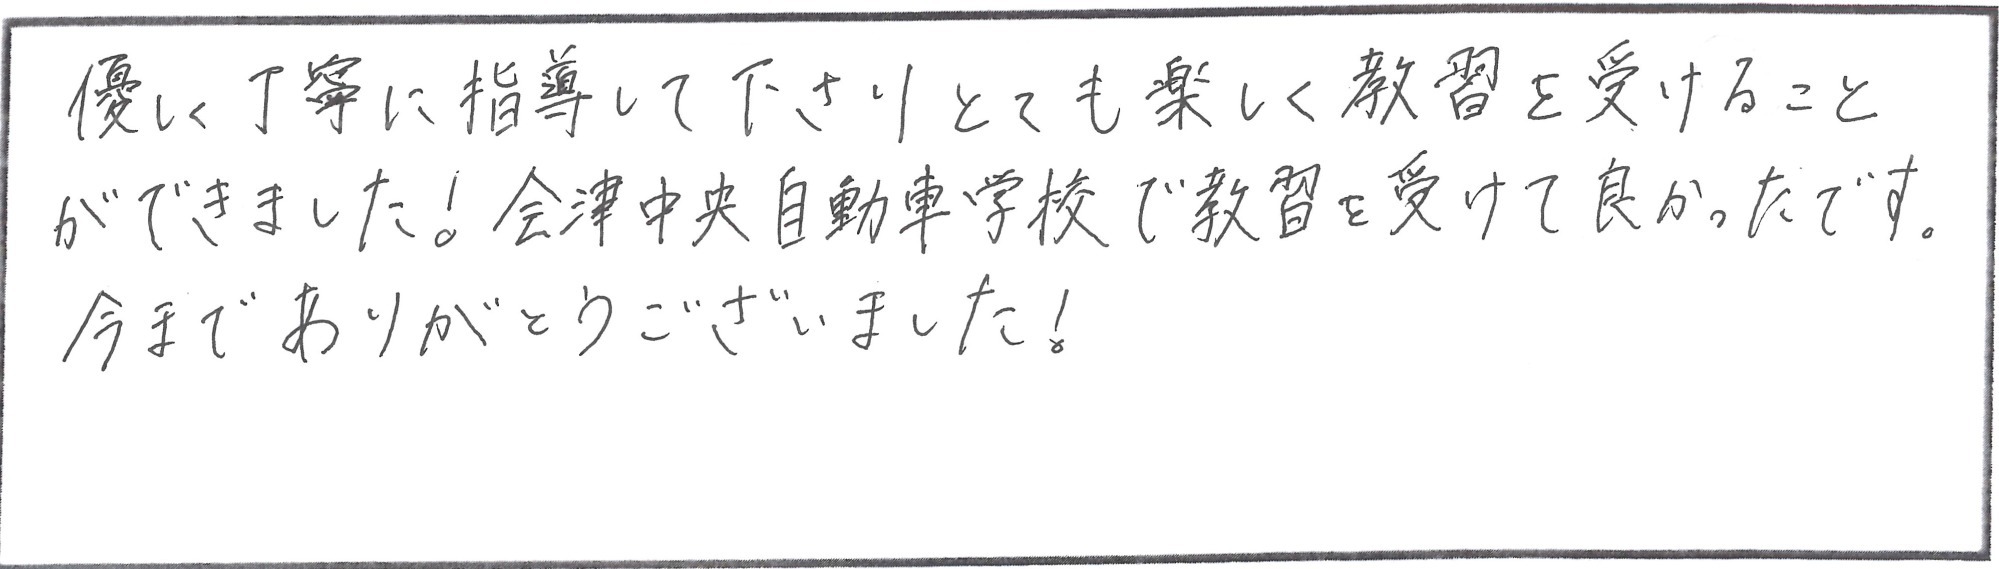 優しく丁寧に指導して下さりとても楽しく教習を受けること
ができました！会津中央自動車学校で教習を受けて良かったです。
今までありがとうございました！